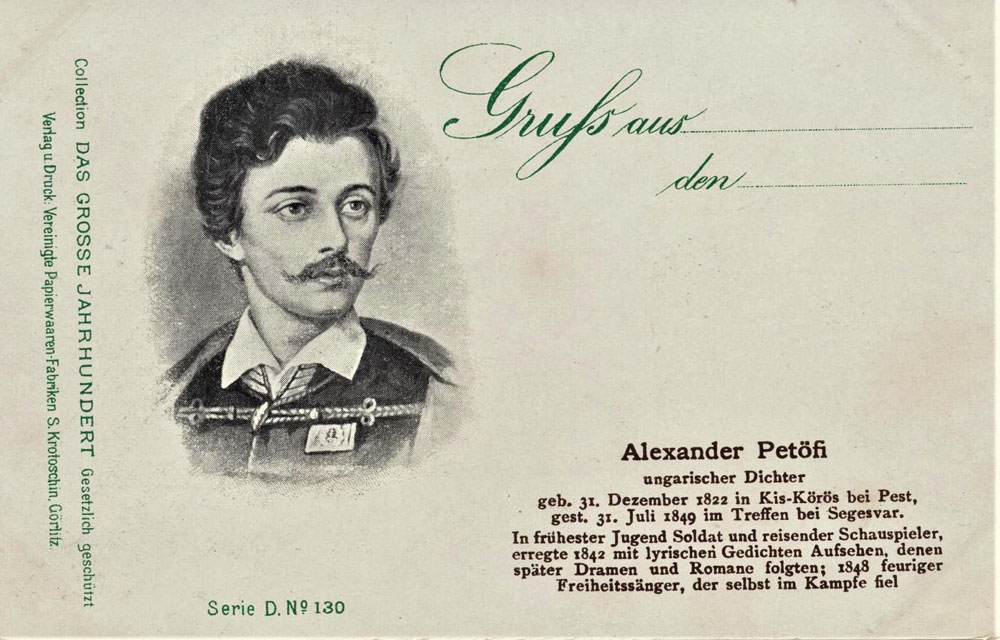 Collection DAS GROSSE JAHRHUNDERT Gesetzlich geschützt
Verlag u. Druck: Vereinigte Papierwaaren-Fabriken S. Krotoschin, Görlitz.
Gruss aus
den
Alexander Petöfi
ungarischer Dichter
geb. 31. Dezember 1822 in Kis-Körös bei Pest,
gest. 31. Juli 1849 im Treffen bei Segesvar.
In frühester Jugend Soldat und reisender Schauspieler,
erregte 1842 mit lyrischen Gedichten Aufsehen, denen
später Dramen und Romane folgten; 1848 feuriger
Freiheitssänger, der selbst im Kampfe fiel
Serie D. Nº 130